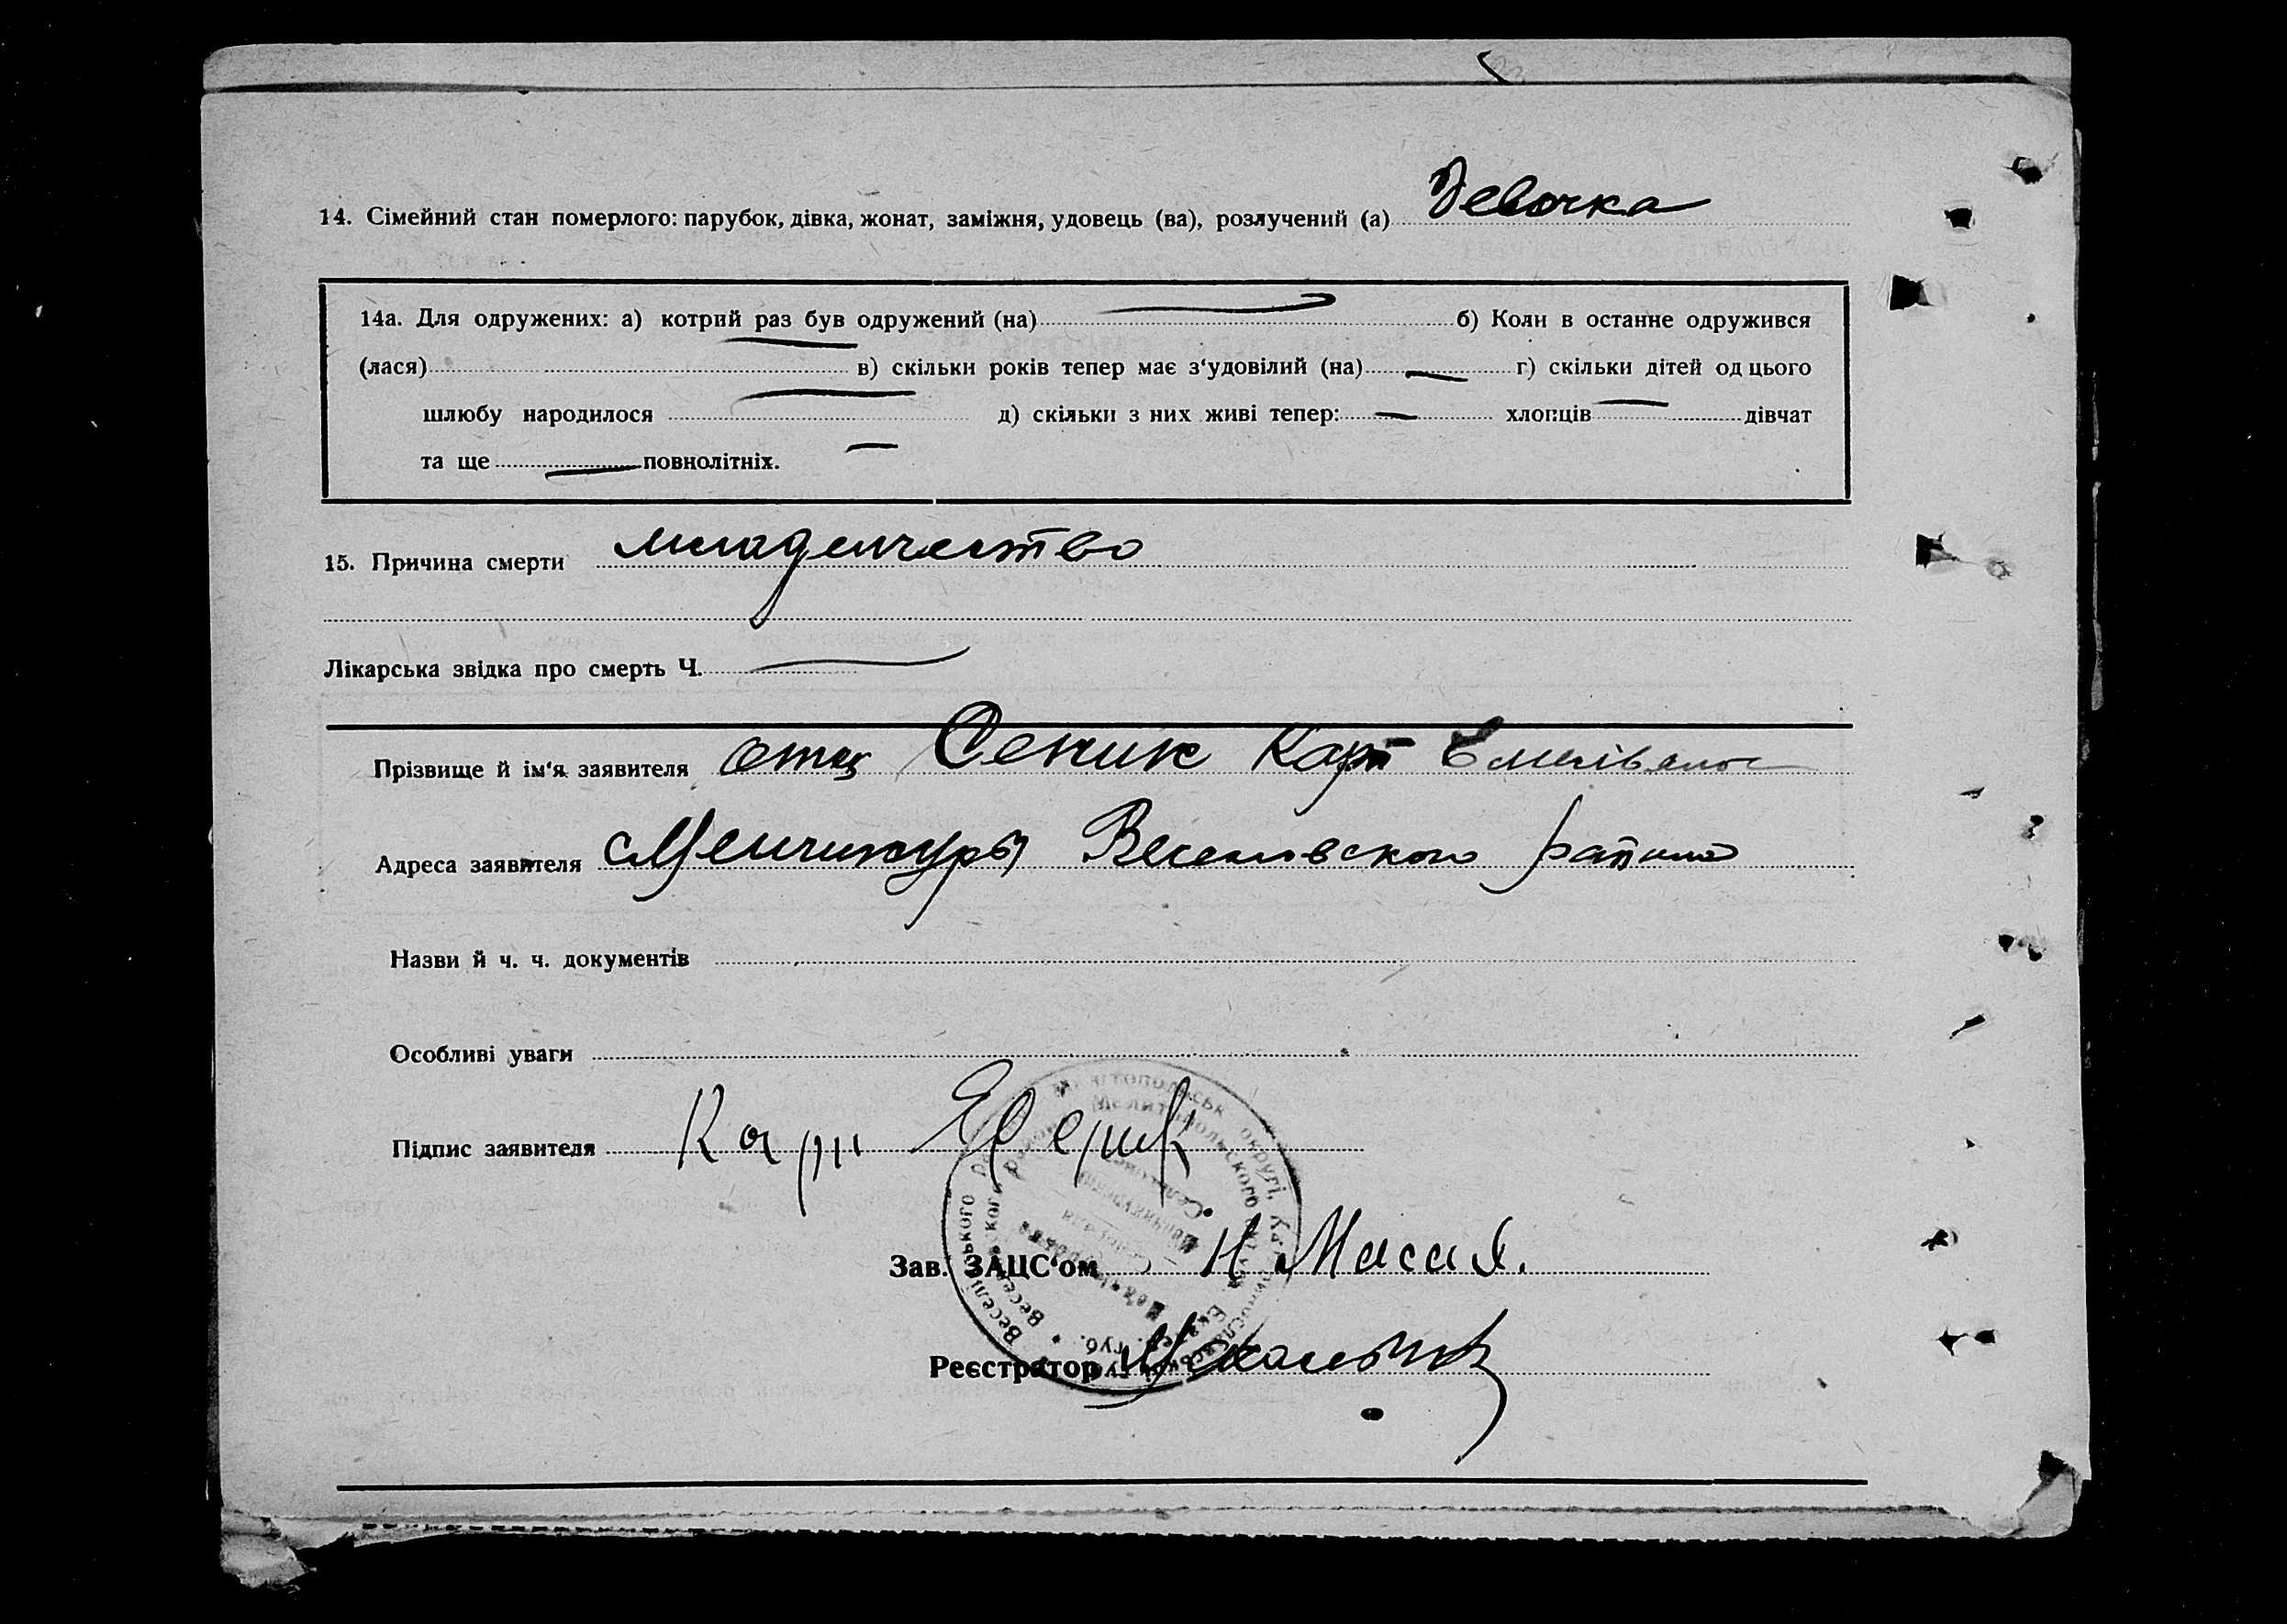 14. Сімейний стан померлого: парубок, дівка, жонат, заміжня, удовець (ва), розлучений (а) Девочка
14а. Для одружених: а) котрий раз був одружений (на) б) Коли в останне одружився
(лася) в) скільки років тепер має з‘удовілий (на) г) скільки дітей од цього
шлюбу народилося д) скільки з них живі тепер: хлопців дівчат
та ще повнолітніх.
15. Причина смерти младенчество
Лікарська звідка про смерть Ч.
Прізвище й ім‘я заявителя отец Сеник Карп
Адреса заявителя с Менчикуры Веселовского района
Назви й ч. ч. документів
Особливі уваги
Підпис заявителя Карп
Зав. ЗАЦС‘ом Н
Реєстратор